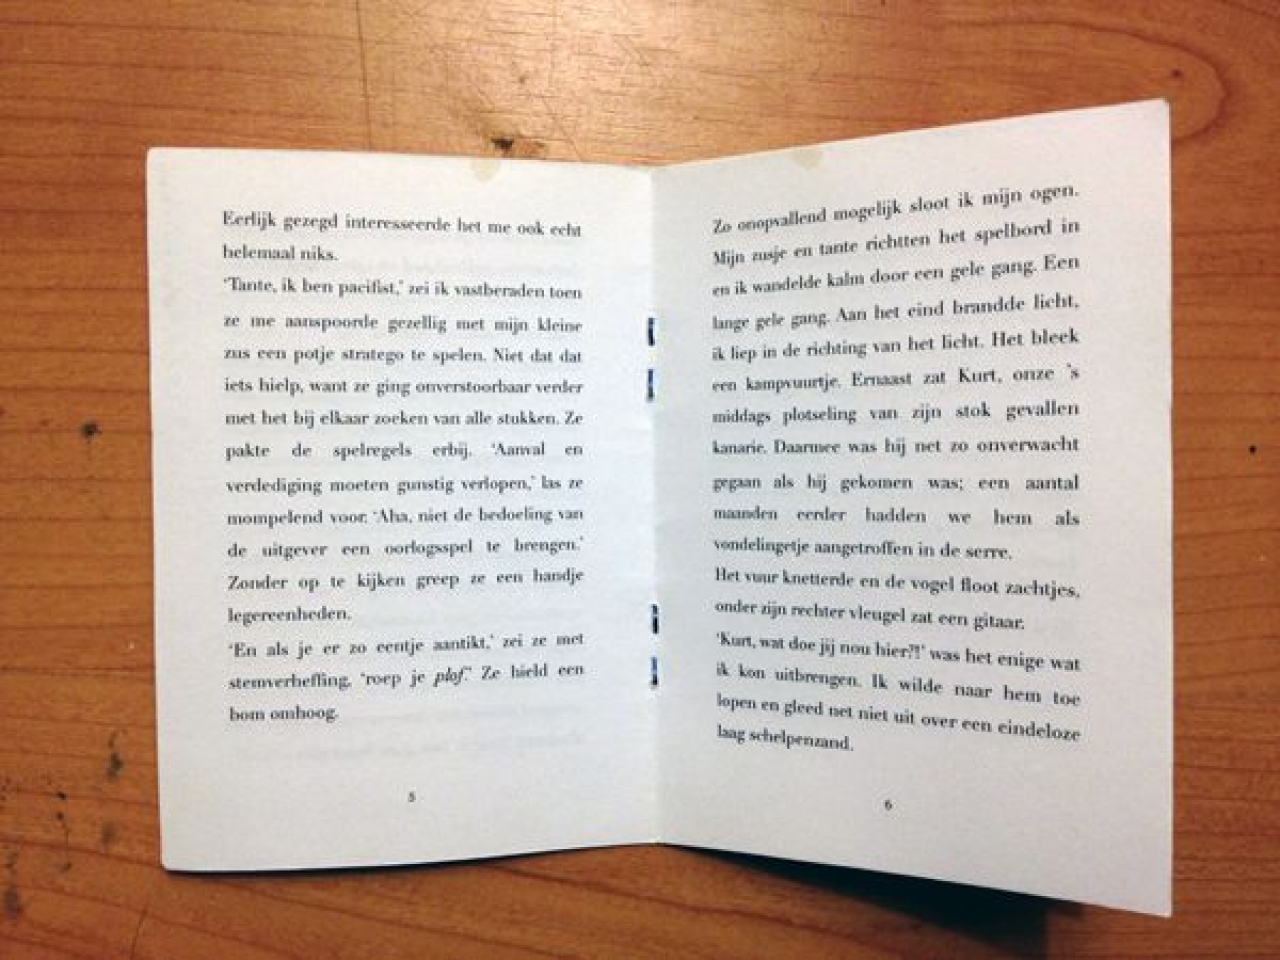 Eerlijk gezegd interesseerde het me ook echt
helemaal niks.
'Tante, ik ben pacifist,' zei ik vastberaden toen
ze me aanspoorde gezellig met mijn kleine
zus een potje stratego te spelen. Niet dat dat
iets hielp, want ze ging onverstoorbaar verder
met het bij elkaar zoeken van alle stukken. Ze
pakte de spelregels erbij. 'Aanval en
verdediging moeten gunstig verlopen,' las ze
mompelend voor. 'Aha, niet de bedoeling van
de uitgever een oorlogsspel te brengen.'
Zonder op te kijken greep ze een handje
legereenheden.
'En als je er zo eentje aantikt,' zei ze met
stemverheffing, 'roep je plof.' Ze hield een
bom omhoog.
5
Zo onopvallend mogelijk sloot ik mijn ogen.
Mijn zusje en tante richtten het spelbord in
en ik wandelde kalm door een gele gang. Een
lange gele gang. Aan het eind brandde licht,
ik liep in de richting van het licht. Het bleek
een kampvuurtje. Ernaast zat Kurt, onze 's
middags plotseling van zijn stok gevallen
kanarie. Daarmee was hij net zo onverwacht
gegaan als hij gekomen was; een aantal
maanden eerder hadden we hem als
vondelingetje aangetroffen in de serre.
Het vuur knetterde en de vogel floot zachtjes,
onder zijn rechter vleugel zat een gitaar.
'Kurt, wat doe jij nou hier?!' was het enige wat
ik kon uitbrengen. Ik wilde naar hem toe
lopen en gleed net niet uit over een eindeloze
laag schelpenzand.
6